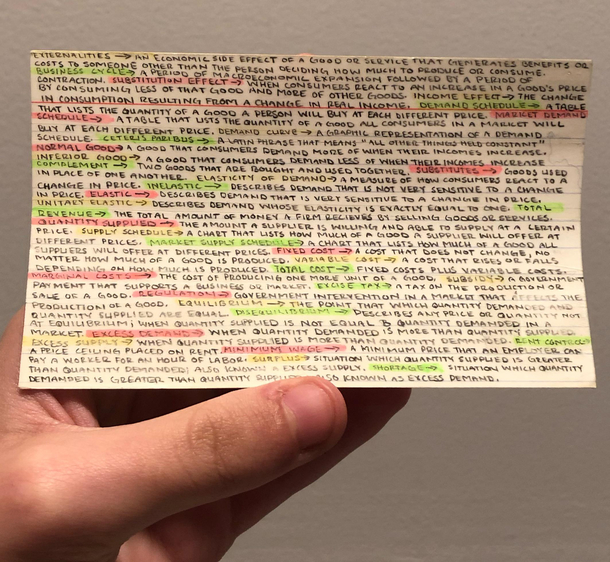 EXTERNALITIES → AN ECONOMIC SIDE EFFECT OF A GOOD OR SERVICE THAT GENERATES BENEFITS OR
COSTS TO SOMEONE OTHER THAN THE PERSON DECIDING HOW MUCH TO PRODUCE OR CONSUME.
BUSINESS CYCLE → A PERIOD OF MACROECONOMIC EXPANSION FOLLOWED BY A PERIOD OF
CONTRACTION. SUBSTITUTION EFFECT → WHEN CONSUMERS REACT TO AN INCREASE IN A GOOD'S PRICE
BY CONSUMING LESS OF THAT GOOD AND MORE OF OTHER GOODS. INCOME EFFECT → THE CHANGE
IN CONSUMPTION RESULTING FROM A CHANGE IN REAL INCOME. DEMAND SCHEDULE → A TABLE
THAT LISTS THE QUANTITY OF A GOOD A PERSON WILL BUY AT EACH DIFFERENT PRICE. MARKET DEMAND
SCHEDULE → A TABLE THAT LISTS THE QUANTITY OF A GOOD ALL CONSUMERS IN A MARKET WILL
BUY AT EACH DIFFERENT PRICE. DEMAND CURVE → A GRAPHIC REPRESENTATION OF A DEMAND
SCHEDULE. CETERIS PARIBUS → A LATIN PHRASE THAT MEANS "ALL OTHER THINGS HELD CONSTANT"
NORMAL GOOD → A GOOD THAT CONSUMERS DEMAND MORE OF WHEN THEIR INCOMES INCREASE.
INFERIOR GOOD → A GOOD THAT CONSUMERS DEMAND LESS OF WHEN THEIR INCOMES INCREASE
COMPLEMENT → TWO GOODS THAT ARE BOUGHT AND USED TOGETHER. SUBSTITUTES → GOODS USED
IN PLACE OF ONE ANOTHER. ELASTICITY OF DEMAND → A MEASURE OF HOW CONSUMERS REACT TO A
CHANGE IN PRICE. INELASTIC → DESCRIBES DEMAND THAT IS NOT VERY SENSITIVE TO A CHANGE
IN PRICE. ELASTIC → DESCRIBES DEMAND THAT IS VERY SENSITIVE TO A CHANGE IN PRICE.
UNITARY ELASTIC → DESCRIBES DEMAND WHOSE ELASTICITY IS EXACTLY EQUAL TO ONE. TOTAL
REVENUE → THE TOTAL AMOUNT OF MONEY A FIRM RECEIVES BY SELLING GOODS OR SERVICES.
QUANTITY SUPPLIED → THE AMOUNT A SUPPLIER IS WILLING AND ABLE TO SUPPLY AT A CERTAIN
PRICE. SUPPLY SCHEDULE → A CHART THAT LISTS HOW MUCH OF A GOOD A SUPPLIER WILL OFFER AT
DIFFERENT PRICES. MARKET SUPPLY SCHEDULE → A CHART THAT LISTS HOW MUCH OF A GOOD ALL
SUPPLIERS WILL OFFER AT DIFFERENT PRICES. FIXED COST → A COST THAT DOES NOT CHANGE, NO
MATTER HOW MUCH OF A GOOD IS PRODUCED. VARIABLE COST → A COST THAT RISES OR FALLS
DEPENDING ON HOW MUCH IS PRODUCED. TOTAL COST → FIXED COSTS PLUS VARIABLE COSTS.
MARGINAL COSTS → THE COST OF PRODUCING ONE MORE UNIT OF A GOOD. SUBSIDY → A GOVERNMENT
PAYMENT THAT SUPPORTS A BUSINESS OR MARKET. EXCISE TAX → A TAX ON THE PRODUCTION OR
SALE OF A GOOD. REGULATION → GOVERNMENT INTERVENTION IN A MARKET THAT AFFECTS THE
PRODUCTION OF A GOOD. EQUILIBRIUM → THE POINT THAT WHICH QUANTITY DEMANDED AND
QUANTITY SUPPLIED ARE EQUAL. DISEQUILIBRIUM → DESCRIBES ANY PRICE OR QUANTITY NOT
AT EQUILIBRIUM; WHEN QUANTITY SUPPLIED IS NOT EQUAL TO QUANTITY DEMANDED IN A
MARKET. EXCESS DEMAND → WHEN QUANTITY DEMANDED IS MORE THAN QUANTITY SUPPLIED
EXCESS SUPPLY → WHEN QUANTITY SUPPLIED IS MORE THAN QUANTITY DEMANDED. RENT CONTROL →
A PRICE CEILING PLACED ON RENT. MINIMUM WAGE → A MINIMUM PRICE THAT AN EMPLOYER CAN
PAY A WORKER FOR AN HOUR OF LABOR. SURPLUS → SITUATION WHICH QUANTITY SUPPLIED IS GREATER
THAN QUANTITY DEMANDED; ALSO KNOWN A EXCESS SUPPLY. SHORTAGE → SITUATION WHICH QUANTITY
DEMANDED IS GREATER THAN QUANTITY SUPPLIED; ALSO KNOWN AS EXCESS DEMAND.